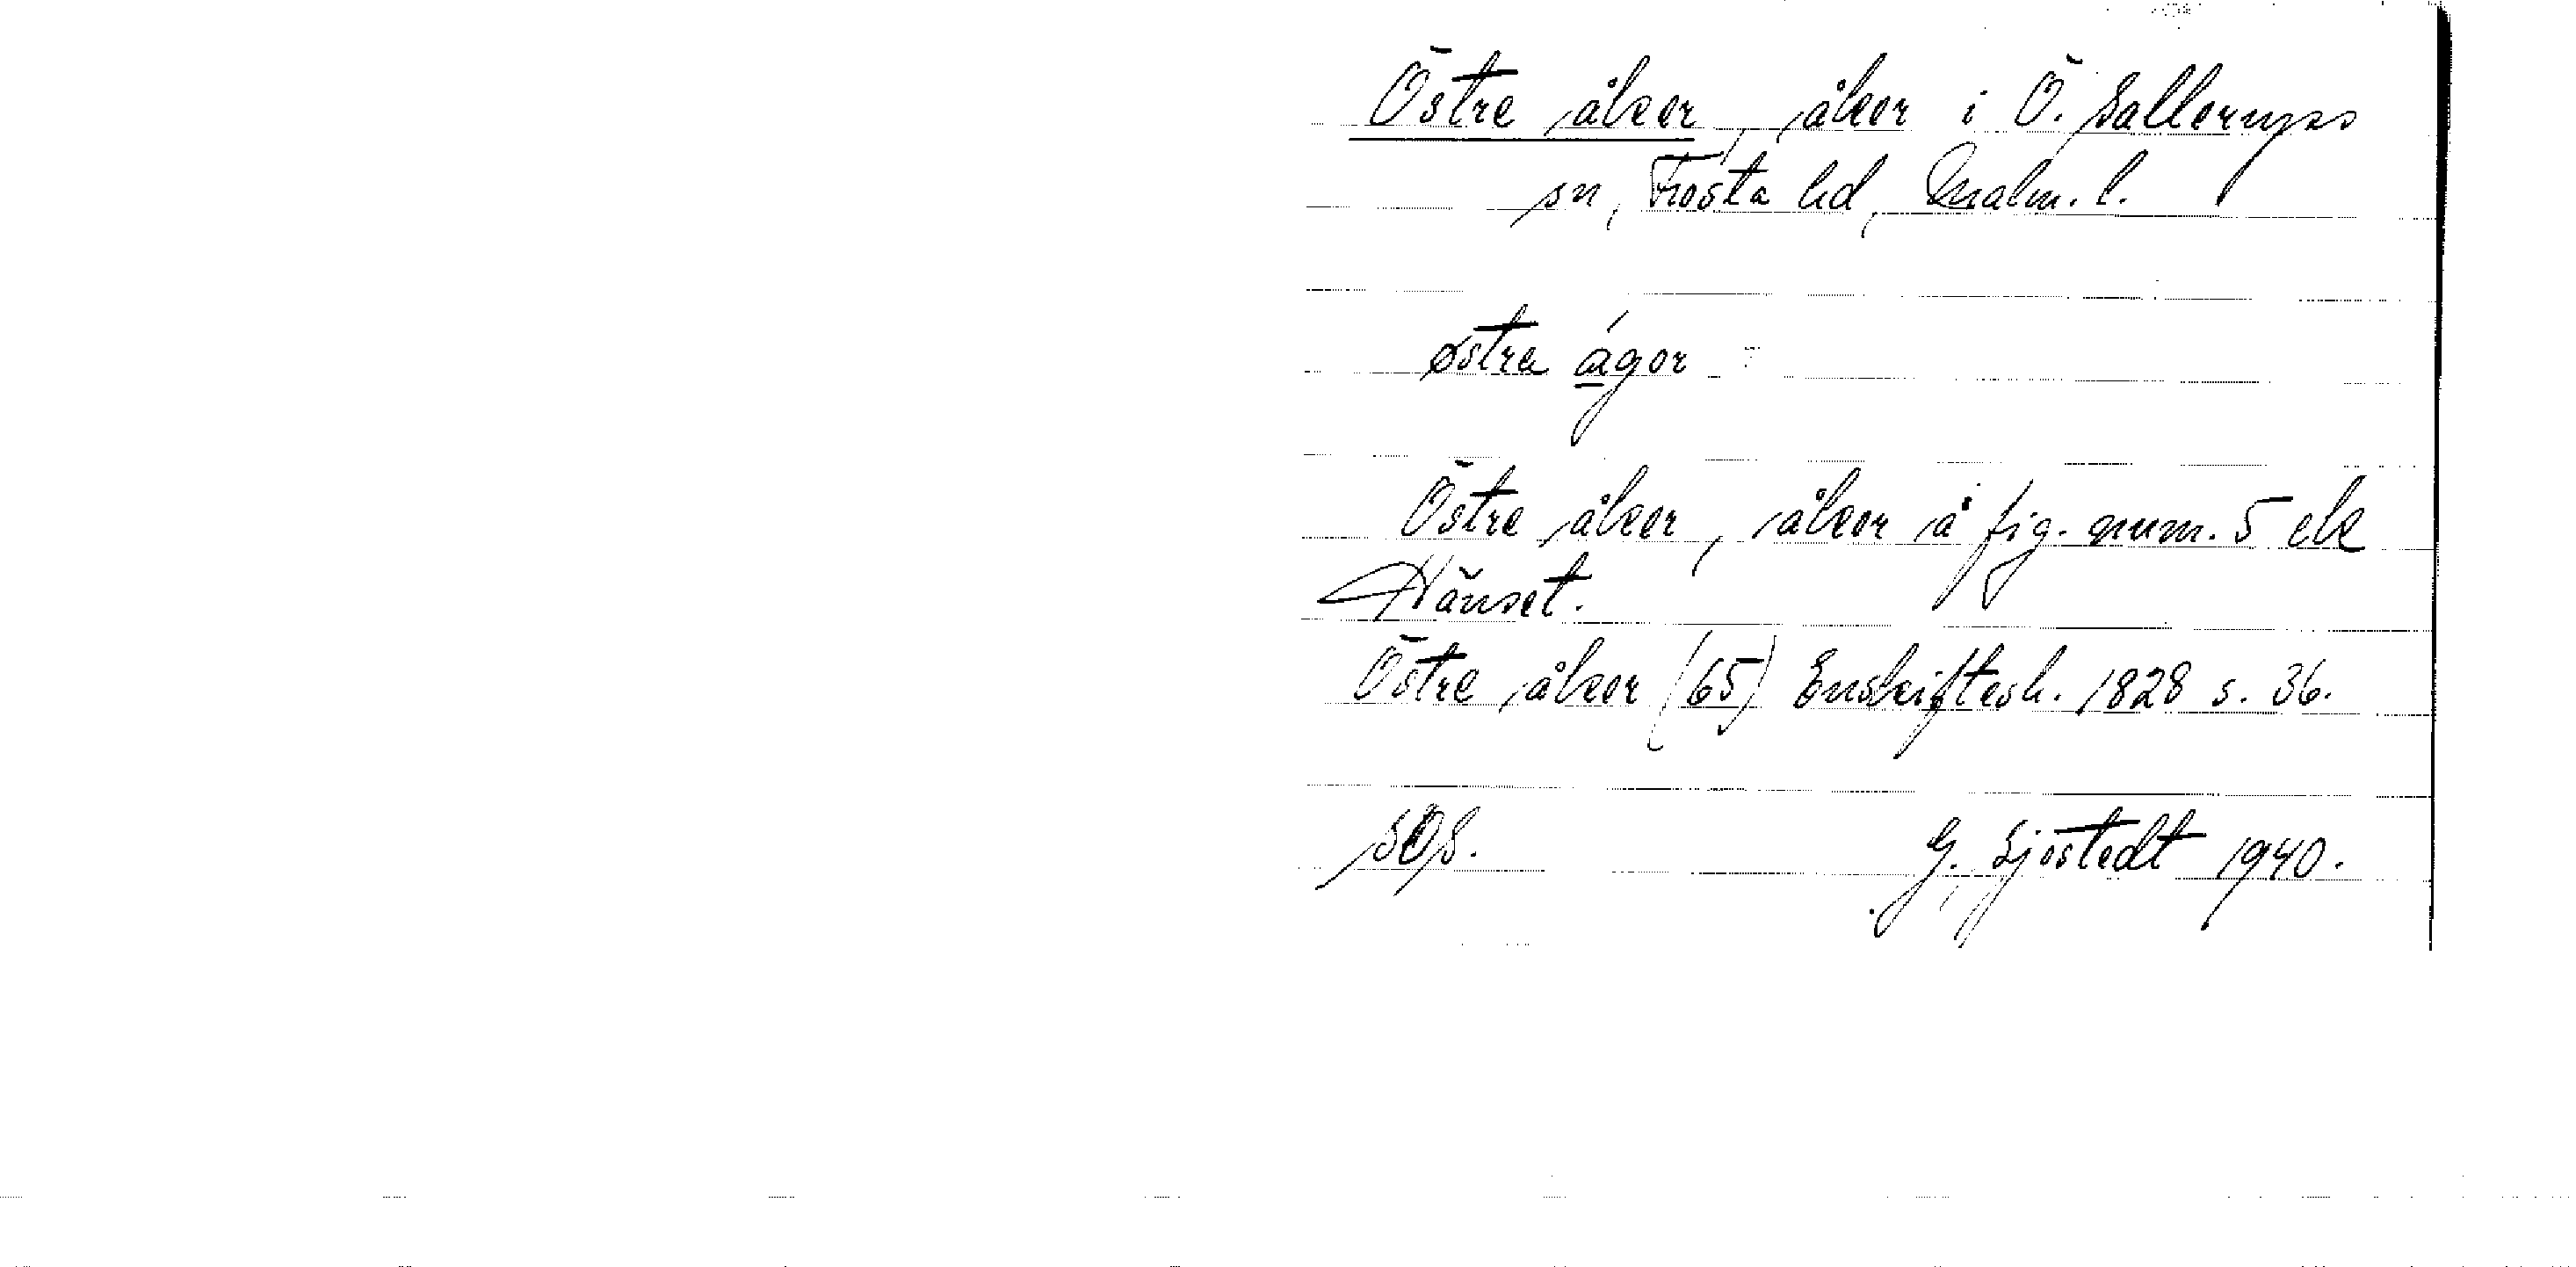 Östre åker, åker i Ö. Sallerups
sn, Frosta hd, Malm. l.
østra ágor
Östre åker, åker å fig. num. 5 ek
Hänset.
Östre åker (65) Enskiftesh. 1828 s. 36.
SOS.
G. Sjöstedt 1940.